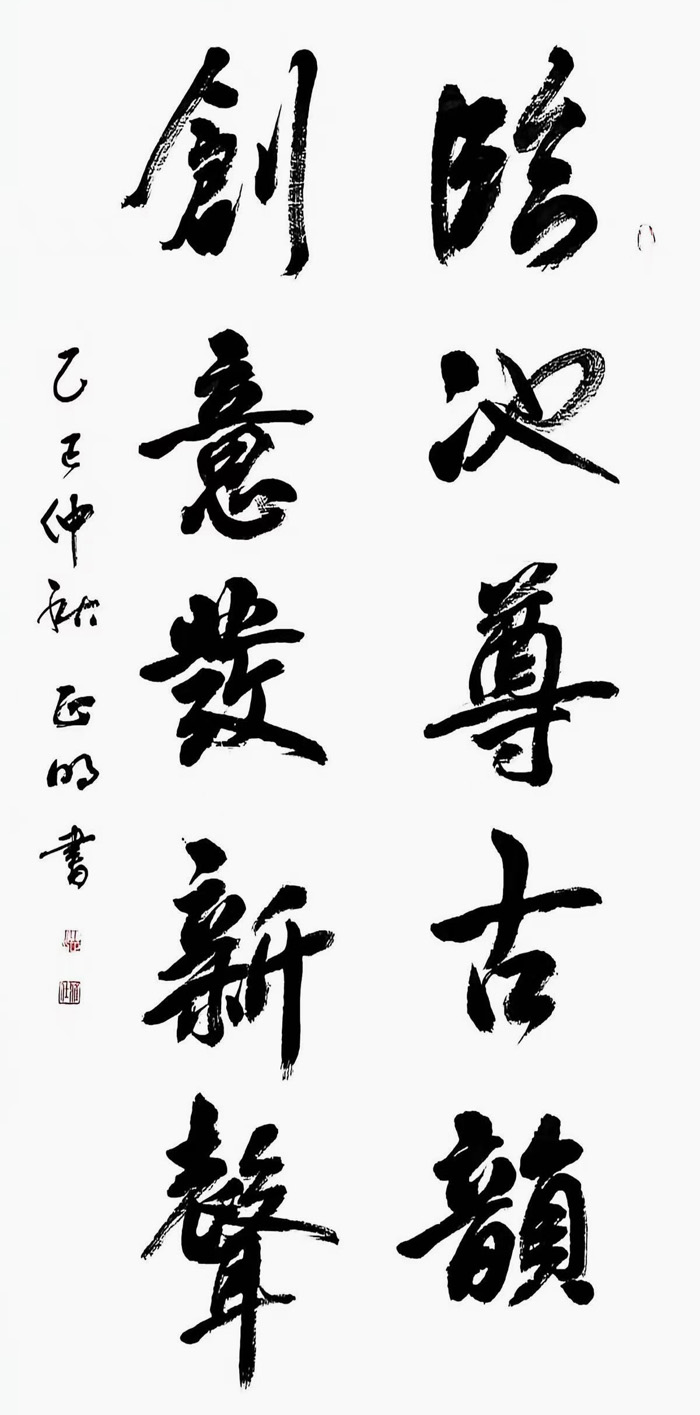 臨池尊古韻
創意發新聲
乙巳仲秋 正明書